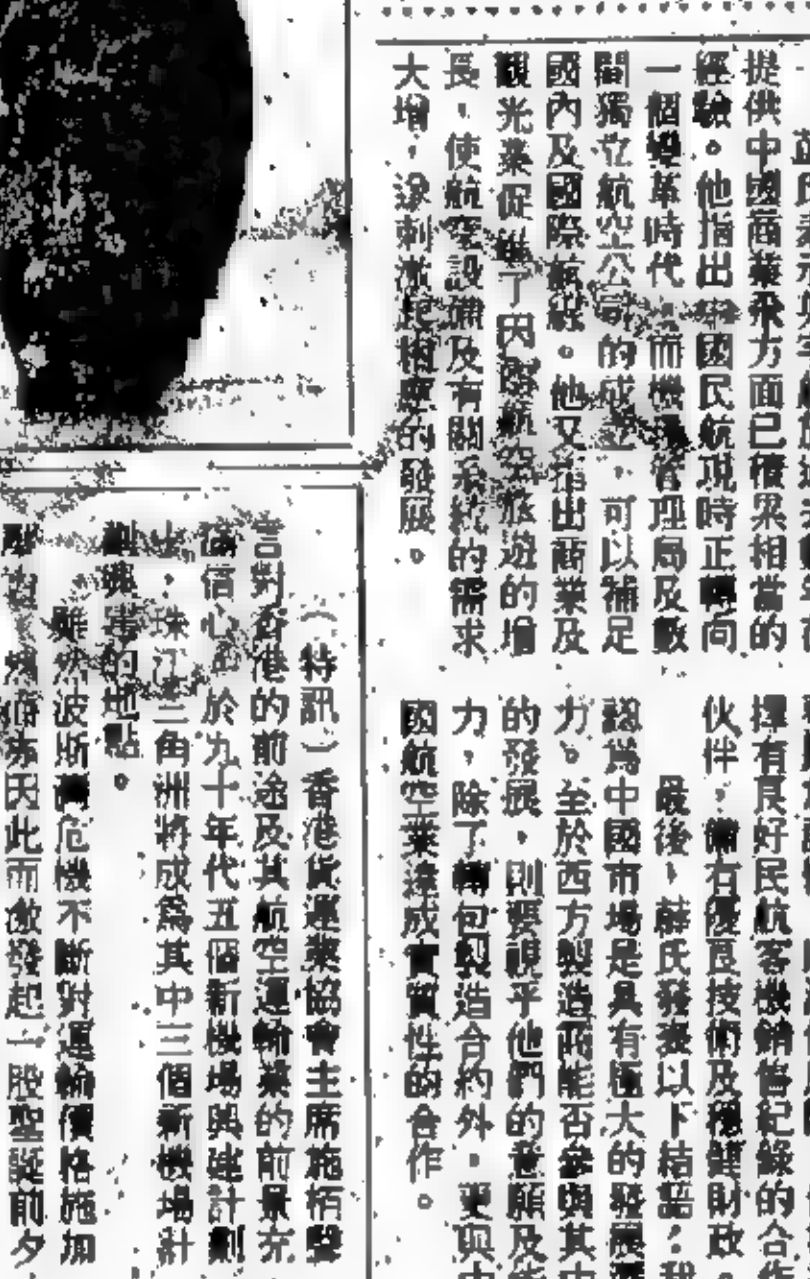 提供中國商業飛方面已積累相當的
經驗。他指出中國民航現時正轉向
一個變革時代，而機場管理局及數
間獨立航空公司的成立，可以補足
國內及國際航線。他又指出商業及
觀光業促進了因際航空旅遊的增
長，使航空設備及有關系統的需求
大增，診刺激起相應的發展。
擇有良好民航客機銷售紀錄的合作
伙伴，備有優良技術及穩健財政。
最後，薛氏發表以下結語：我
認為中國市場是具有極大的發展潛
力。至於西方製造商能否參與其中
的發展，則要視乎他們的意願及能
力，除了轉包製造合約外，更與中
國航空業達成實質性的合作。
（特訊）香港貨運業協會主席施栢聲
言對香港的前途及其航空運輸業的前景充
滿信心。於九十年代五個新機場興建計劃
上，珠江三角洲將成為其中三個新機場計
劃興建的地點。
雖然波斯灣危機不斷對運輸價格施加
因此而激發起一股聖誕前夕